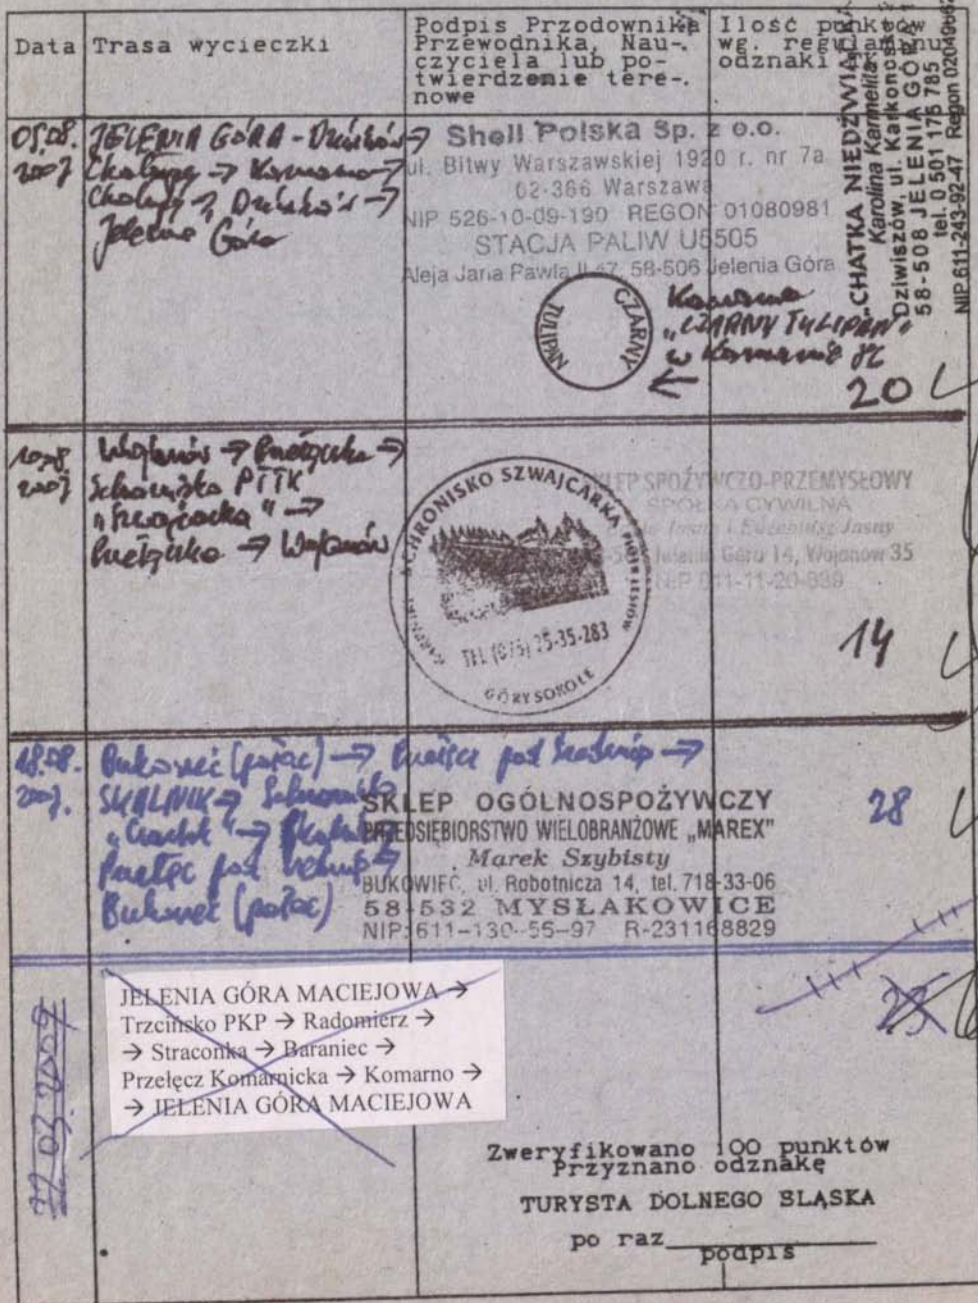 Data
Trasa wycieczki
Podpis Przodownika
Przewodnika, Nau-
czyciela lub po-
twierdzenie tere-
nowe
Ilość punktów
wg. regulaminu
odznaki
05.08.
2007
JELENIA GÓRA - Dziwiszów →
→ Komarno →
Dziwiszów →
Jelenia Góra
Shell Polska Sp. z o.o.
ul. Bitwy Warszawskiej 1920 r. nr 7a
02-366 Warszawa
NIP 526-10-09-190 REGON 01080981
STACJA PALIW U5505
Aleja Jana Pawła II 47, 58-506 Jelenia Góra
CZARNY
TULIPAN
Komarno
"CZARNY TULIPAN"
w Komarnie
"CHATKA NIEDŹWIADKA
Karolina Karmelita
Dziwiszów, ul. Karkonoska
58-508 JELENIA GÓRA
tel. 0 501 175 785
NIP 611-243-92-47 Regon 0204962
20
10.08.
2007
Wojanów → Przełęcz →
Schronisko PTTK
"Szwajcarka" →
→ Wojanów
SCHRONISKO SZWAJCARKA
TEL (075) 75-35-283
GÓRY SOKOLE
SKLEP SPOŻYWCZO-PRZEMYSŁOWY
SPÓŁKA CYWILNA
Jelenia Góra 14, Wojanow 35
14
18.08.
2007.
Bukowiec (pałac) → Przełęcz pod Średnicą →
SKALNIK → Schronisko
"Czartak" →
Przełęcz pod
Bukowiec (pałac)
SKLEP OGÓLNOSPOŻYWCZY
PRZEDSIĘBIORSTWO WIELOBRANŻOWE „MAREX"
Marek Szybisty
BUKOWIEC, ul. Robotnicza 14, tel. 718-33-06
58-532 MYSŁAKOWICE
NIP: 611-130-55-97 R-231168829
28
22.03.2009
JELENIA GÓRA MACIEJOWA →
Trzcińsko PKP → Radomierz →
→ Straconka → Baraniec →
Przełęcz Komarnicka → Komarno →
→ JELENIA GÓRA MACIEJOWA
23
Zweryfikowano 100 punktów
Przyznano odznakę
TURYSTA DOLNEGO SLĄSKA
po raz
podpis